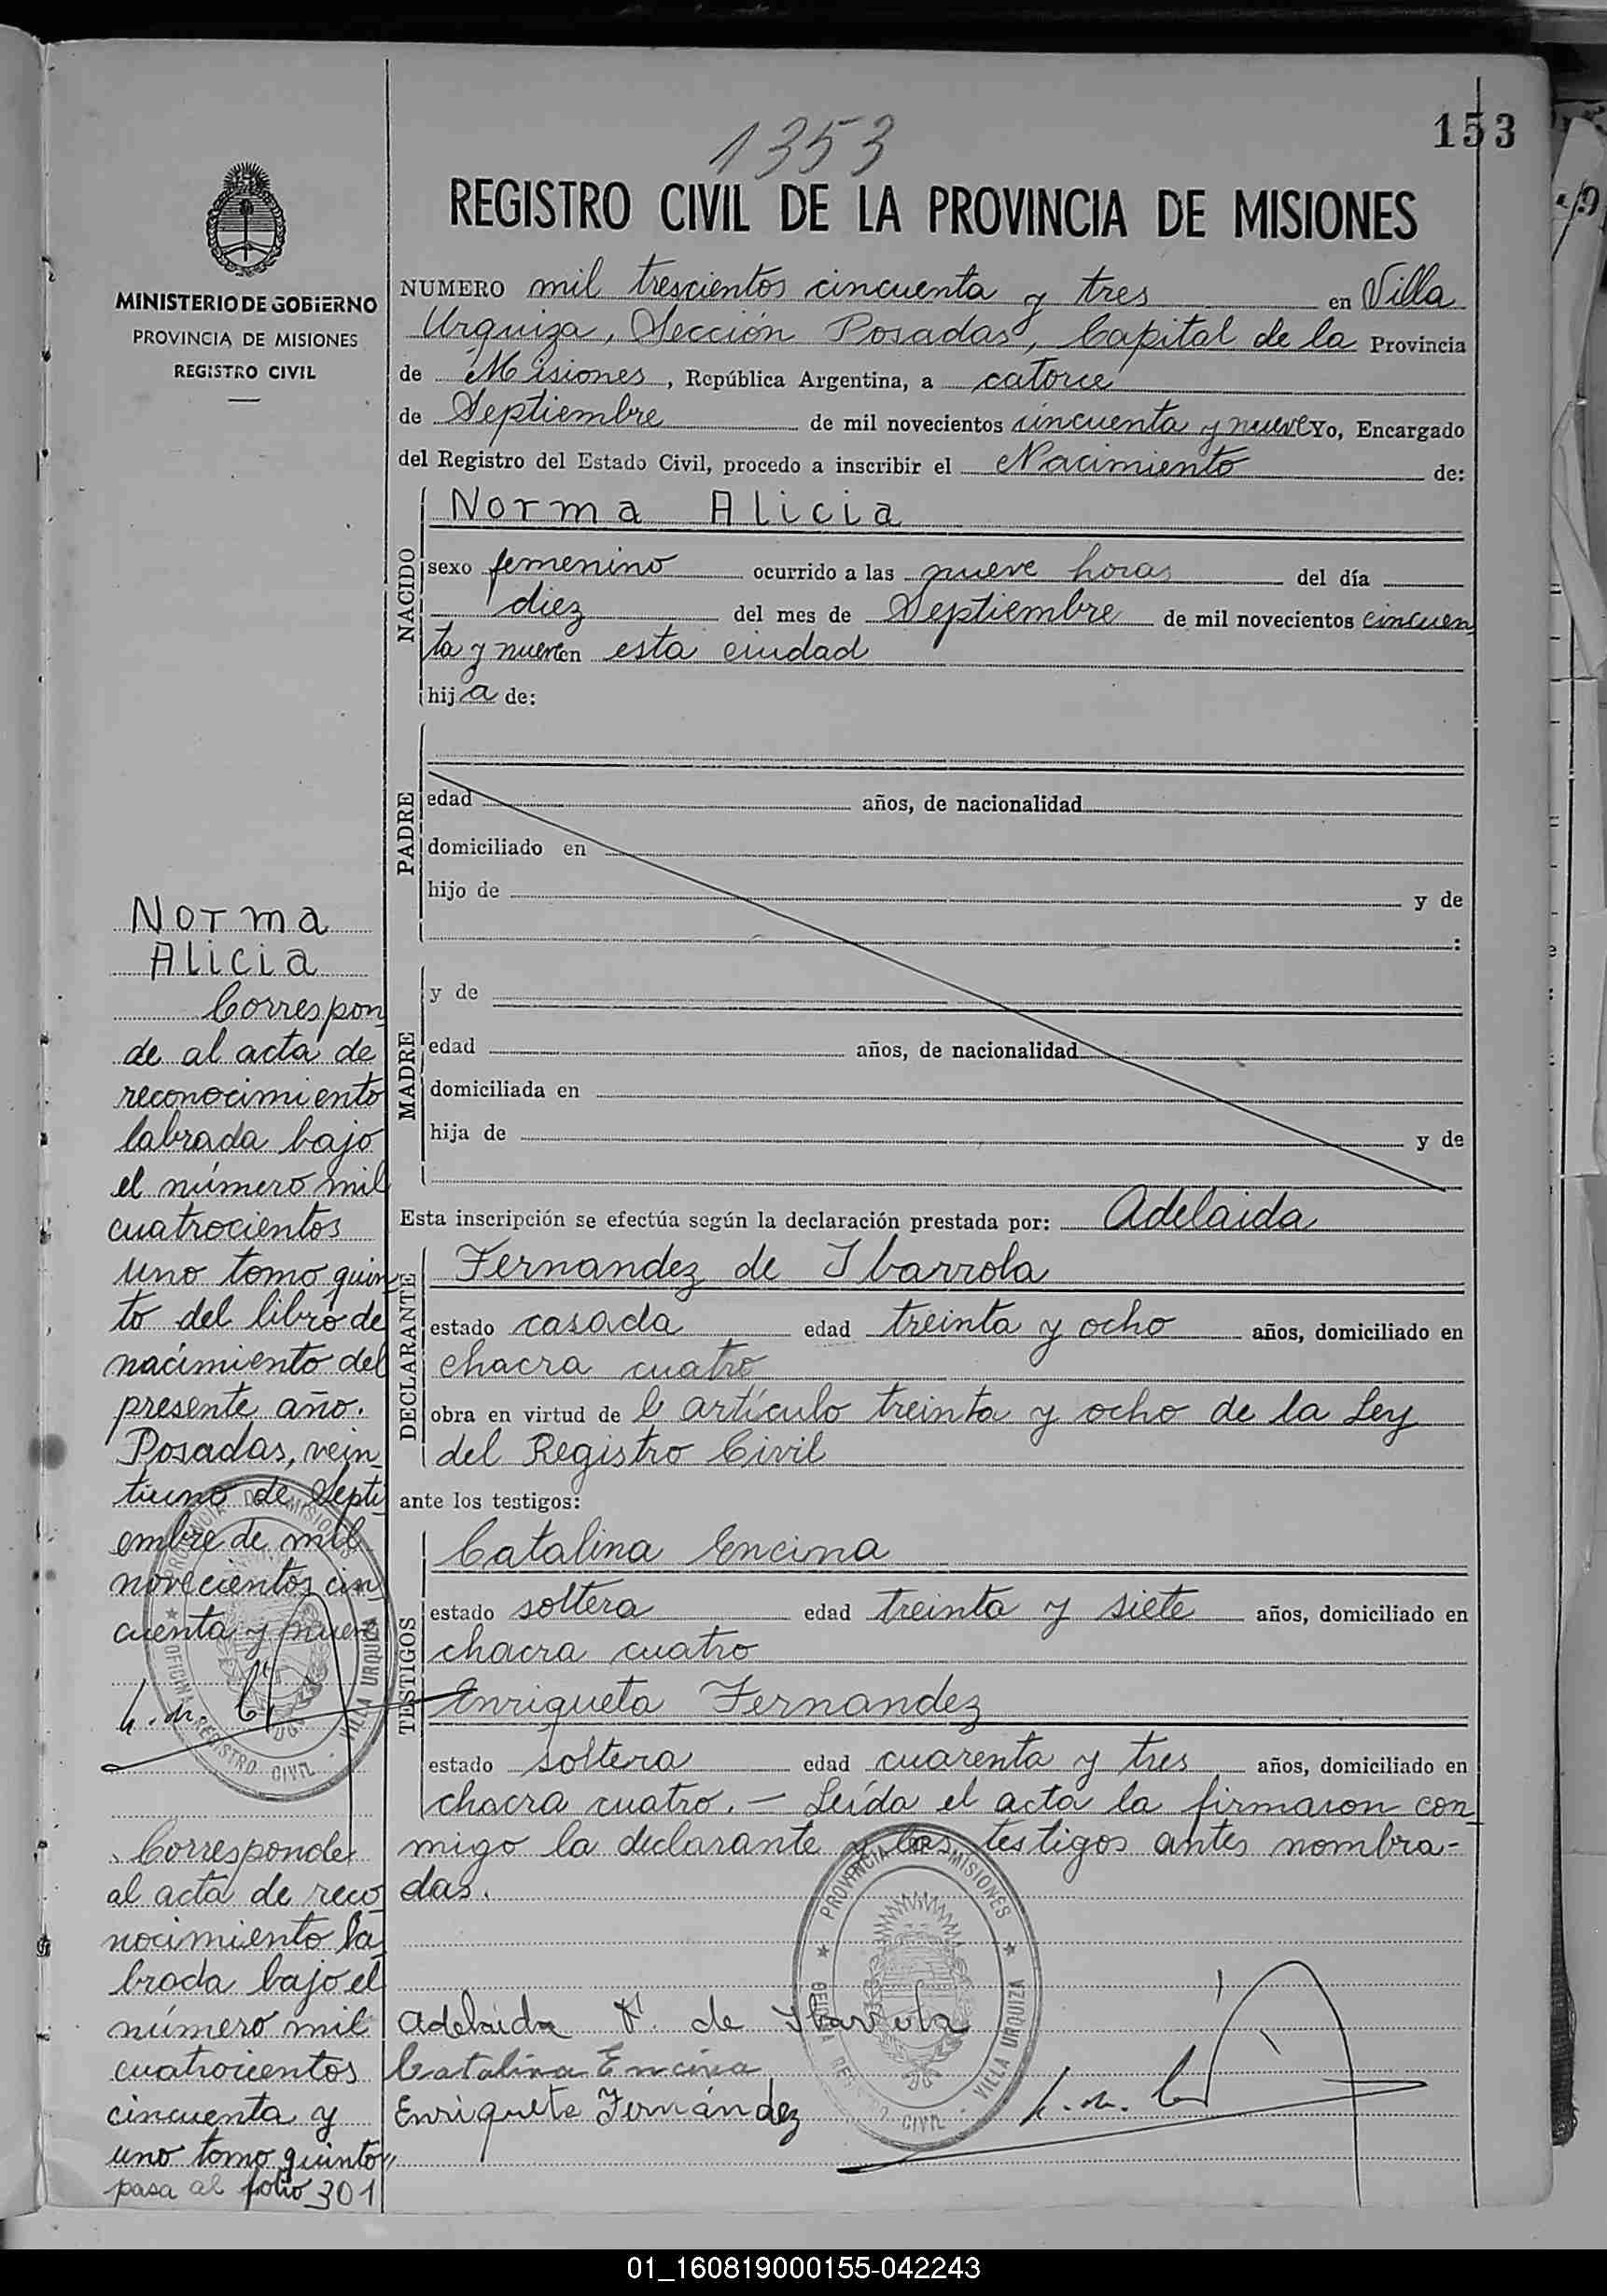 153
1353
REGISTRO CIVIL DE LA PROVINCIA DE MISIONES
MINISTERIO DE GOBIERNO
PROVINCIA DE MISIONES
REGISTRO CIVIL
NUMERO mil trescientos cincuenta y tres en Villa
Urquiza, Sección Posadas, Capital de la Provincia
de Misiones, República Argentina, a catorce
de Septiembre de mil novecientos cincuenta y nueve Yo, Encargado
del Registro del Estado Civil, procedo a inscribir el Nacimiento de:
NACIDO
Norma Alicia
sexo femenino ocurrido a las nueve horas del día
diez del mes de Septiembre de mil novecientos cincuen
ta y nueve en esta ciudad
hija de:
PADRE
edad años, de nacionalidad
domiciliado en
hijo de y de
:
MADRE
y de
edad años, de nacionalidad
domiciliada en
hija de y de
Esta inscripción se efectúa según la declaración prestada por: Adelaida
DECLARANTE
Fernandez de Ibarrola
estado casada edad treinta y ocho años, domiciliado en
chacra cuatro
obra en virtud de l artículo treinta y ocho de la Ley
del Registro Civil
ante los testigos:
TESTIGOS
Catalina Encina
estado soltera edad treinta y siete años, domiciliado en
chacra cuatro
Enriqueta Fernandez
estado soltera edad cuarenta y tres años, domiciliado en
chacra cuatro. — Leída el acta la firmaron con
migo la declarante y las testigos antes nombra-
das.
Adelaida F. de Ibarrola
Catalina Encina
Enriqueta Fernández
PROVINCIA DE MISIONES
OFICINA REGISTRO CIVIL - VILLA URQUIZA
Norma
Alicia
Correspon
de al acta de
reconocimiento
labrada bajo
el número mil
cuatrocientos
uno tomo quin
to del libro de
nacimiento del
presente año.
Posadas, vein
tiuno de Septi
embre de mil
novecientos cin
cuenta y nueve
PROVINCIA DE MISIONES
OFICINA REGISTRO CIVIL - VILLA URQUIZA
Corresponde
al acta de reco
nocimiento la
brada bajo el
número mil
cuatrocientos
cincuenta y
uno tomo quinto,,
pasa al folio 301
01_160819000155-042243